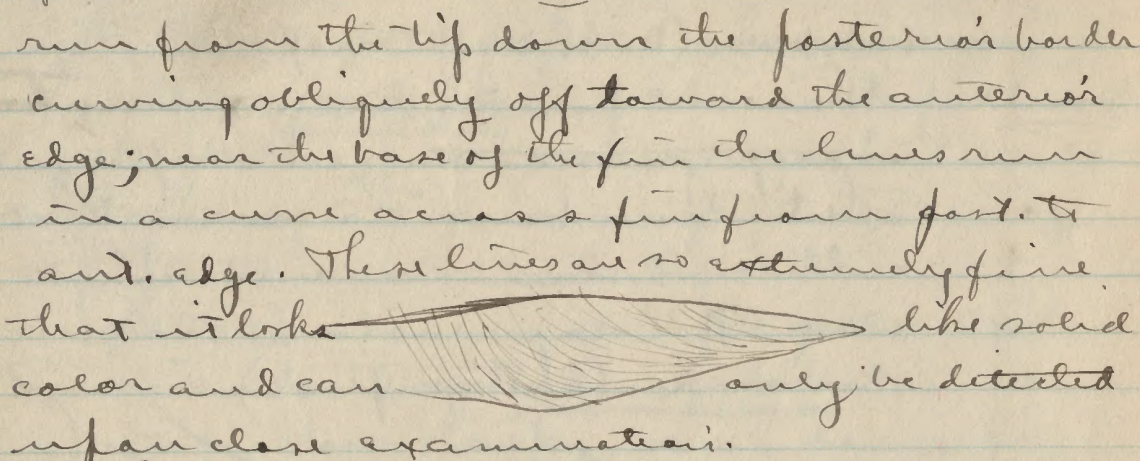 run from the tip down the posterior border
curving obliquely off toward the anterior
edge; near the base of the fin the lines run
in a curve across fin from post. to
ant. edge. These lines are so extremely fine
that it looks like solid
color and can only be detected
upon close examination.